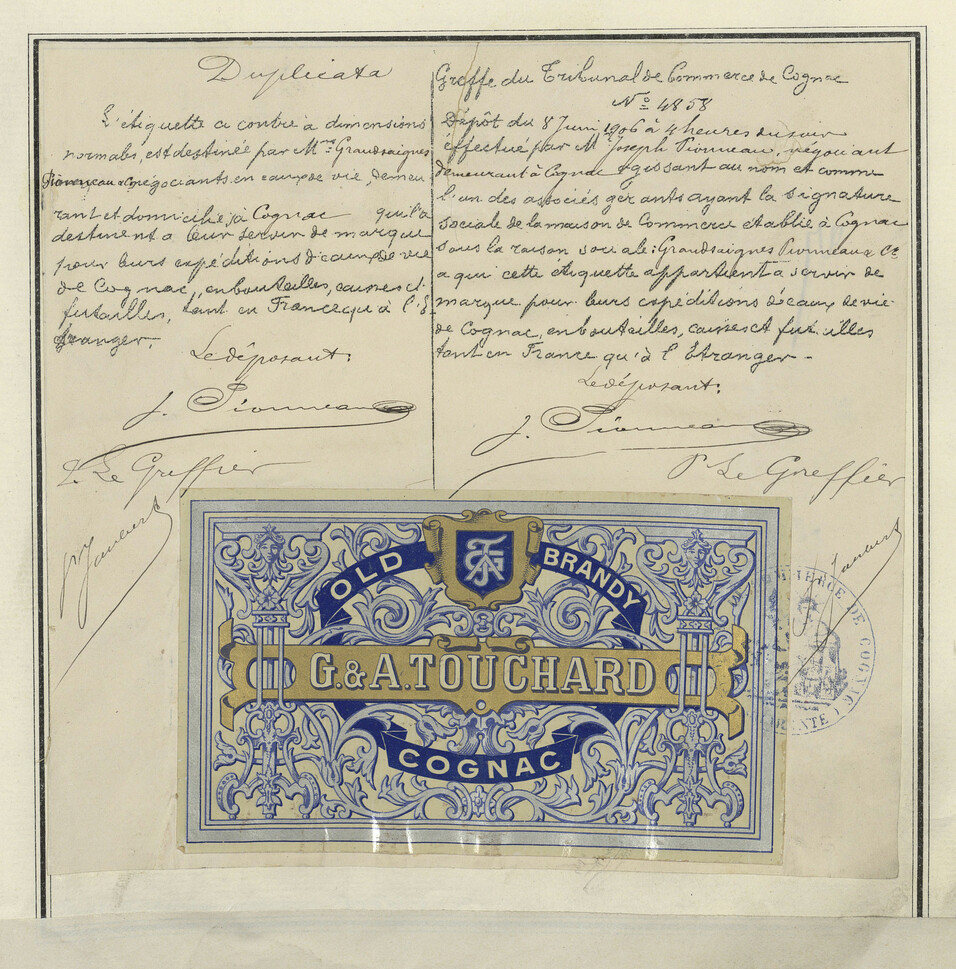 Duplicata
L'étiquette ci contre à dimensions
normales, est destinée par Mrs Grandsaignes
Pionneau & Cie négociants en eaux de vie, demeu
rant et domiciliés à Cognac qu'ils
destinent à leur servir de marque
pour leurs expéditions d'eaux de vie
de Cognac, en bouteilles, caisses et
futailles, tant en France qu'à l'E-
tranger.
Le déposant:
J. Pionneau
P. Le Greffier
Greffe du Tribunal de Commerce de Cognac
No 4858
Dépôt du 8 Juin 1906 à 4 heures du soir
effectué par M Joseph Pionneau, négociant
demeurant à Cognac agissant au nom et comme
l'un des associés gérants ayant la signature
sociale de la maison de Commerce établie à Cognac
sous la raison sociale: Grandsaignes Pionneau & Cie
à qui cette étiquette appartient à servir de
marque pour leurs expéditions d'eaux de vie
de Cognac, en bouteilles, caisses et futailles
tant en France qu'à l'Etranger -
Le déposant:
J. Pionneau
P Le Greffier
OLD BRANDY
G. & A. TOUCHARD
COGNAC
COMMERCE DE COGNAC